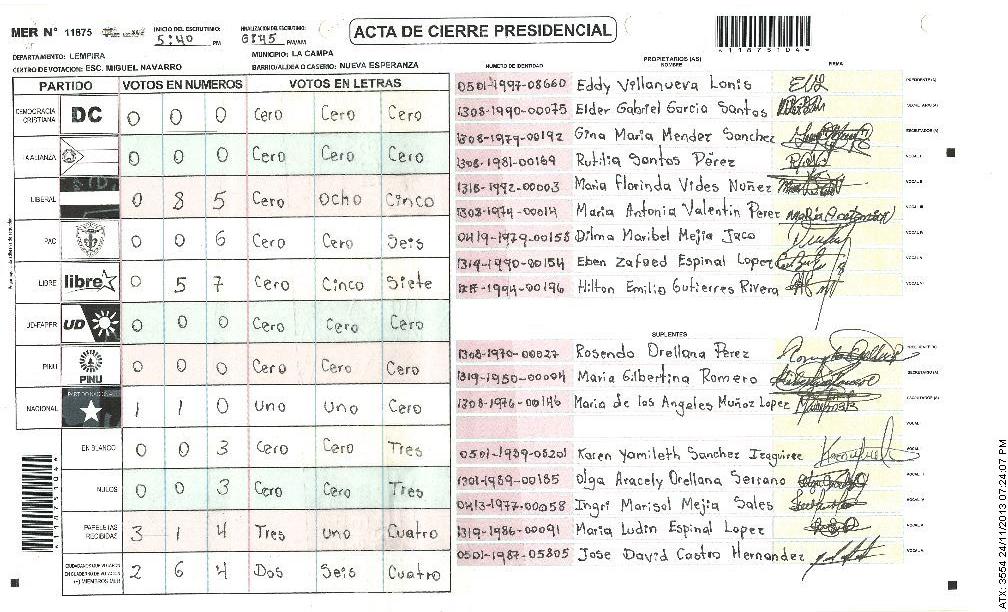 MER N° 11875
INICIO DEL ESCRUTINIO:
5:40 PM
FINALIZACION DEL ESCRUTINIO:
6:45 PM/AM
ACTA DE CIERRE PRESIDENCIAL
DEPARTAMENTO: LEMPIRA
MUNICIPIO: LA CAMPA
CENTRO DE VOTACION: ESC. MIGUEL NAVARRO
BARRIO/ALDEA O CASERIO: NUEVA ESPERANZA
PARTIDO VOTOS EN NUMEROS VOTOS EN LETRAS
DEMOCRACIA CRISTIANA DC 0 0 0 Cero Cero Cero
LA ALIANZA 0 0 0 Cero Cero Cero
LIBERAL 0 8 5 Cero Ocho Cinco
PAC 0 0 6 Cero Cero Seis
LIBRE libre 0 5 7 Cero Cinco Siete
UD-FAPER UD 0 0 0 Cero Cero Cero
PINU PINU 0 0 0 Cero Cero Cero
NACIONAL PARTIDO NACIONAL 1 1 0 Uno Uno Cero
EN BLANCO 0 0 3 Cero Cero Tres
NULOS 0 0 3 Cero Cero Tres
PAPELETAS RECIBIDAS 3 1 4 Tres uno Cuatro
CIUDADANOS QUE VOTARON EN CUADERNO DE VOTACION (+) MIEMBROS MER 2 6 4 Dos Seis Cuatro
PROPIETARIOS (AS)
NUMERO DE IDENTIDAD NOMBRE FIRMA
0501-1997-08660 Eddy Villanueva Lonis PRESIDENTE (A)
1308-1990-00075 Elder Gabriel Garcia Santos SECRETARIO (A)
1308-1979-00192 Gina Maria Mendez Sanchez ESCRUTADOR (A)
1308-1981-00169 Rutilia Santos Pérez VOCAL I
1318-1992-00003 Maria Florinda Vides Nuñez VOCAL II
1308-1974-00014 Maria Antonia Valentin Perez VOCAL III
0419-1979-00158 Dilma Maribel Mejia Jaco VOCAL IV
1319-1990-00154 Eben Zafoed Espinal Lopez VOCAL V
1994-00196 Hilton Emilio Gutierres Rivera VOCAL VI
SUPLENTES
1308-1970-00027 Rosendo Orellana Perez
1319-1950-00004 Maria Gilbertina Romero SECRETARIO (A)
1308-1976-00146 Maria de los Angeles Muñoz Lopez ESCRUTADOR (A)
VOCAL I
0501-1989-08201 Karen Yamileth Sanchez Izaguirre
1301-1989-00185 Olga Aracely Orellana Serrano
0413-1977-00058 Ingri Marisol Mejia Sales
1319-1986-00091 Maria Ludin Espinal Lopez
0501-1987-05805 Jose David Castro Hernandez
ATX: 3554 24/11/2013 07:24:07 PM